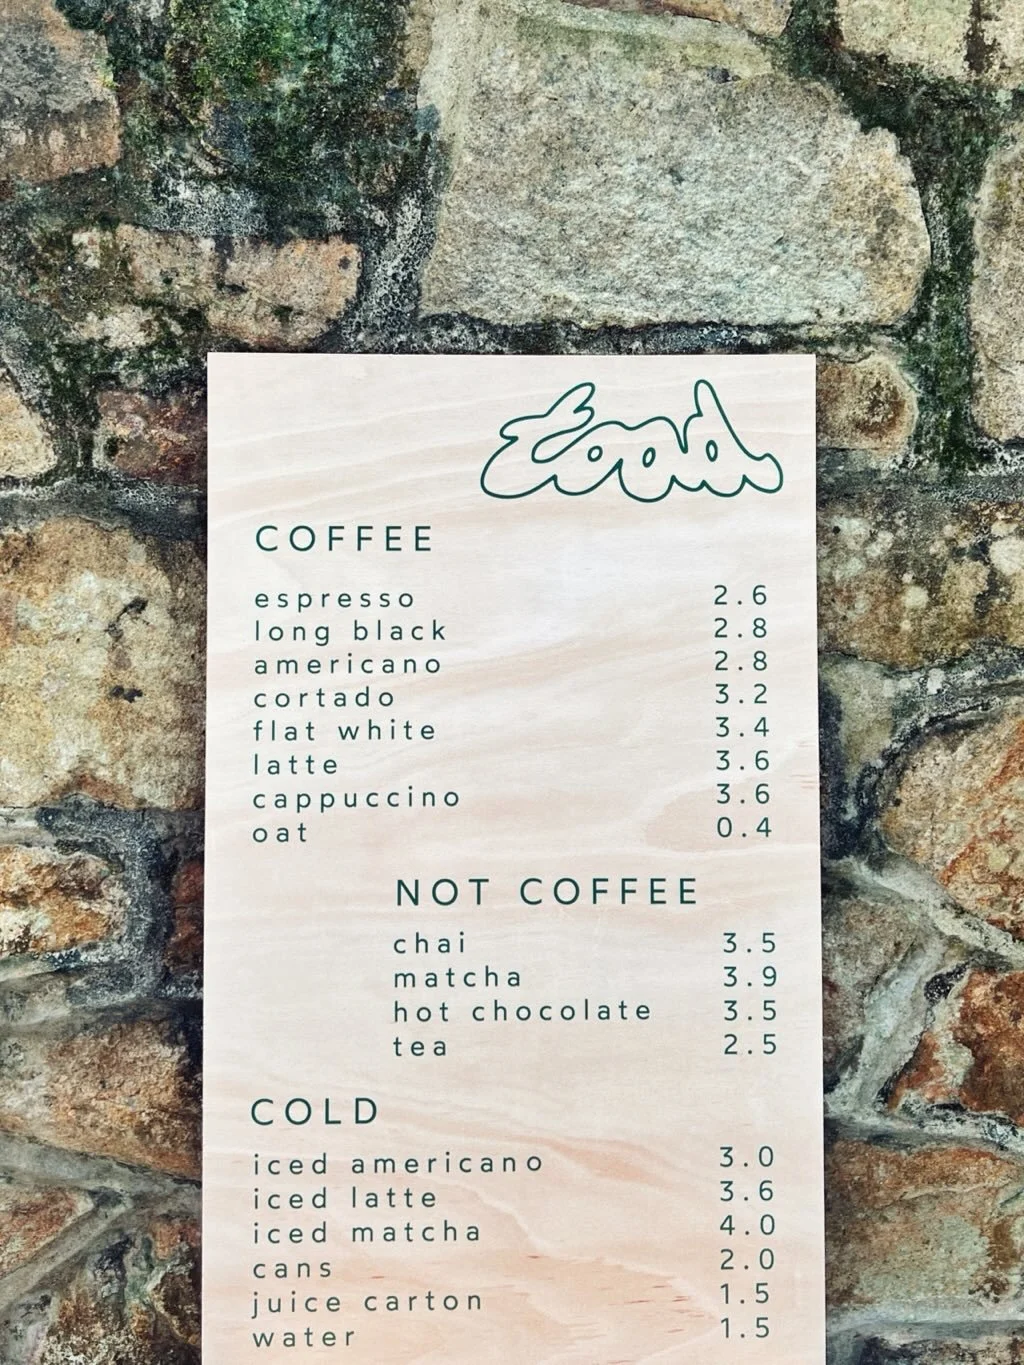 toad
COFFEE
espresso 2.6
long black 2.8
americano 2.8
cortado 3.2
flat white 3.4
latte 3.6
cappuccino 3.6
oat 0.4
NOT COFFEE
chai 3.5
matcha 3.9
hot chocolate 3.5
tea 2.5
COLD
iced americano 3.0
iced latte 3.6
iced matcha 4.0
cans 2.0
juice carton 1.5
water 1.5